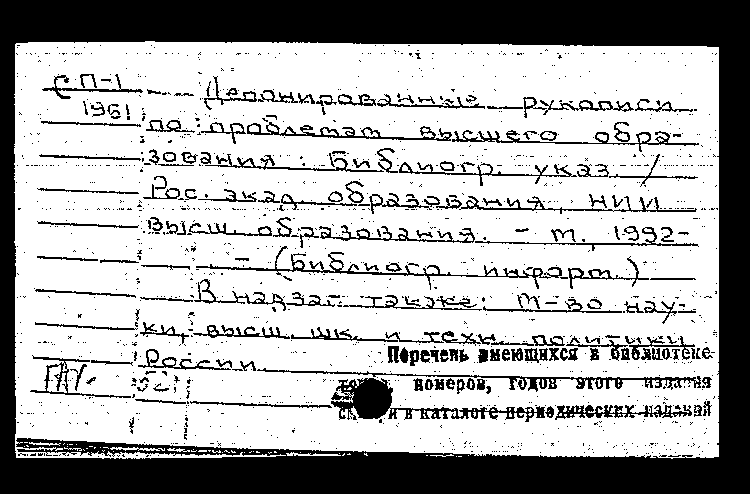 СП-1
1961
Депонированные рукописи
по проблемам высшего обра-
зования : Библиогр. указ. /
Рос. акад. образования, НИИ
высш. образования. - М., 1992-
. - (Библиогр. информ.)
В надзаг. также: М-во нау-
ки, высш. шк. и техн. политики
России.
Перечень имеющихся в библиотеке
номеров, годов этого издания
и в каталоге периодических изданий